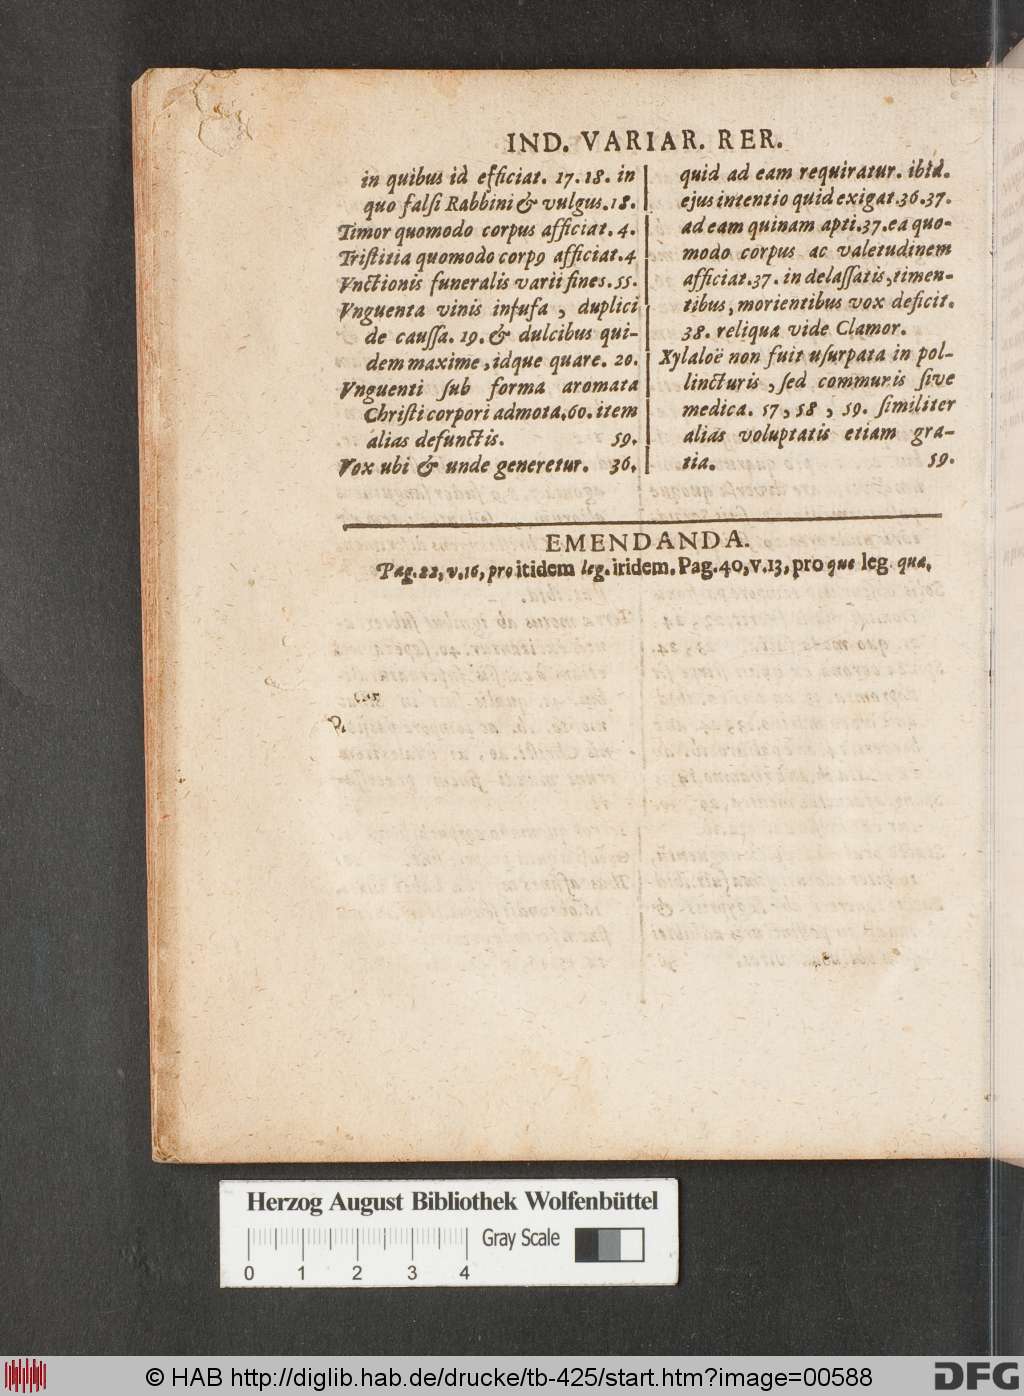 IND. VARIAR. RER.
in quibus id efficiat. 17. 18. in
quo falſi Rabbini & vulgus. 18.
Timor quomodo corpus afficiat. 4.
Triſtitia quomodo corpꝰ afficiat. 4
Vnctionis funeralis varii fines. 55.
Vnguenta vinis infuſa, duplici
de cauſſa. 19. & dulcibus qui-
dem maxime, idque quare. 20.
Vnguenti ſub forma aromata
Chriſti corpori admota. 60. item
alias defunctis. 59.
Vox ubi & unde generetur. 36.
quid ad eam requiratur. ibid.
ejus intentio quid exigat. 36. 37.
ad eam quinam apti. 37. ea quo-
modo corpus ac valetudinem
afficiat. 37. in delaſſatis, timen-
tibus, morientibus vox deficit.
38. reliqua vide Clamor.
Xylaloë non fuit uſurpata in pol-
lincturis, ſed communis ſive
medica. 57, 58, 59. ſimiliter
alias voluptatis etiam gra-
tia. 59.
EMENDANDA.
Pag. 22, v. 16, pro itidem leg. iridem. Pag. 40, v. 13, pro que leg. qua.
Herzog August Bibliothek Wolfenbüttel
Gray Scale
0 1 2 3 4
© HAB http://diglib.hab.de/drucke/tb-425/start.htm?image=00588
DFG